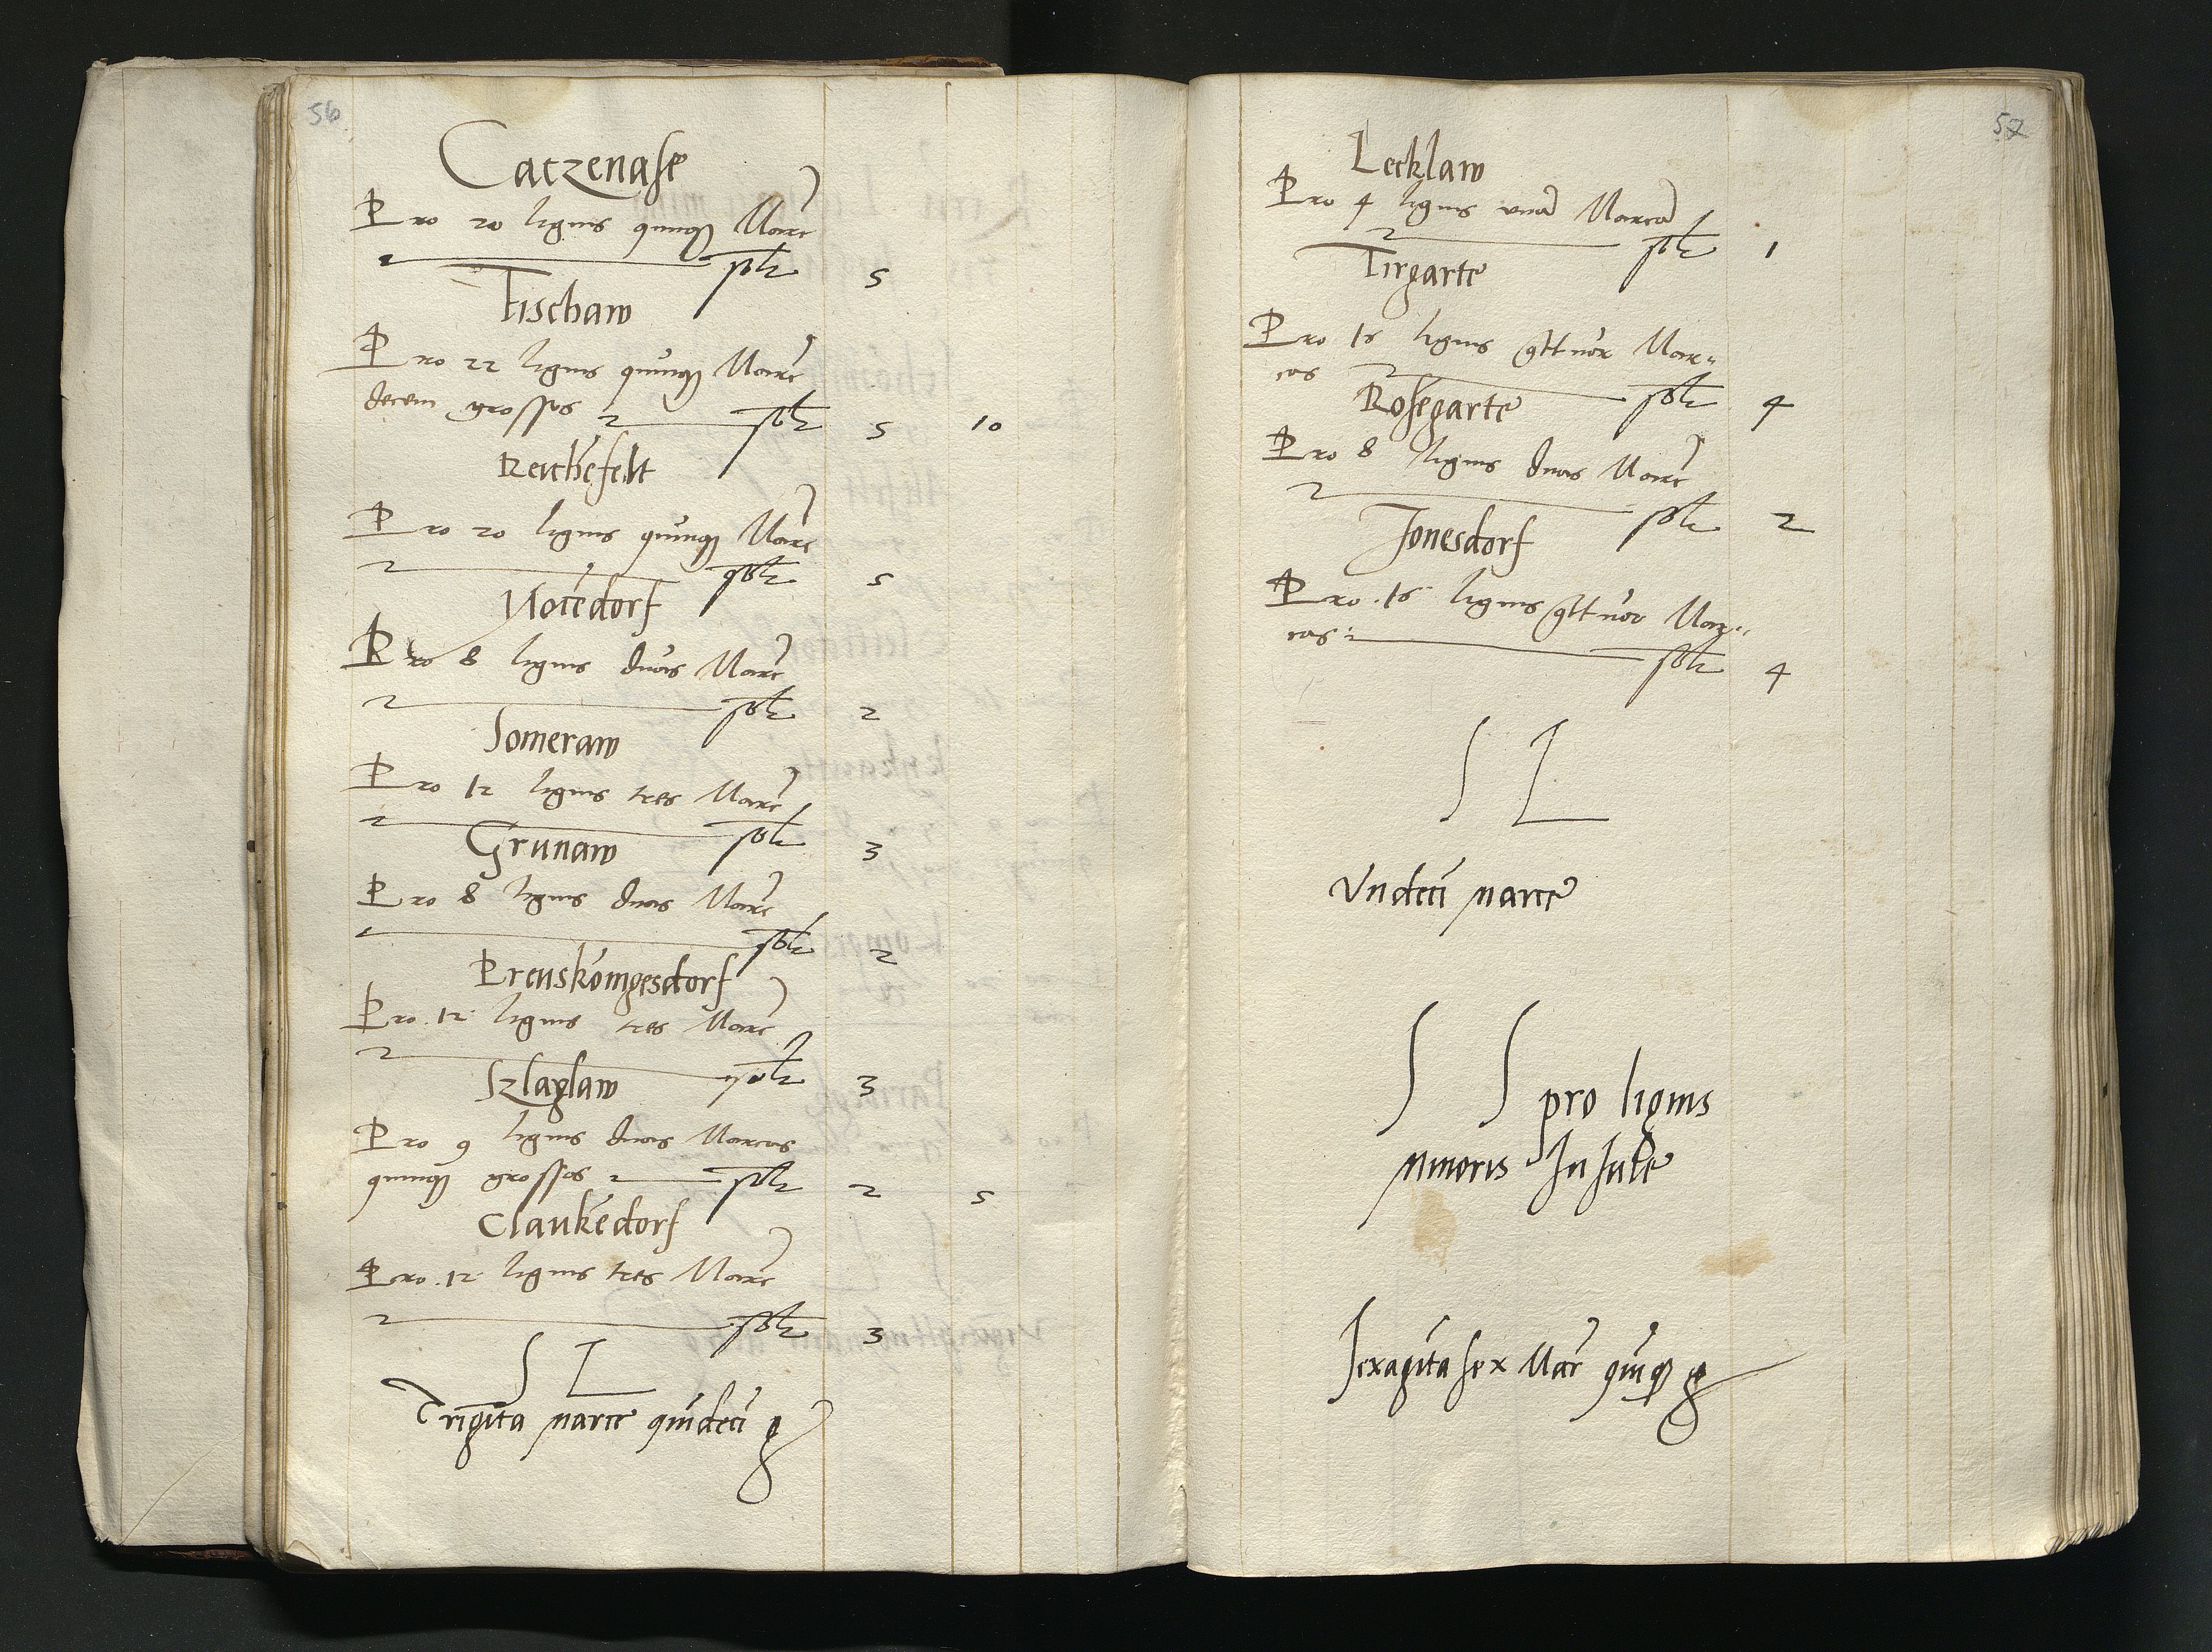 56
Catzenase
Pro 20 lignis quinq Marc
solt 5
Fischaw
Pro 22 lignis quinq Marc
decem grossos solt 5 10
Reichefelt
Pro 20 lignis quinq Marc
solt 5
Notedorf
Pro 8 lignis duas Marc
solt 2
Someraw
Pro 12 lignis tres Marc
solt 3
Grunaw
Pro 8 lignis duas Marc
solt 2
Preuskonigesdorf
Pro 12 lignis tres Marc
solt 3
Szlaglaw
Pro 9 lignis duas Marcas
quinq grossos solt 2 5
Claukedorf
Pro 12 lignis tres Marc
solt 3
S L
Trigita marce quideci g
57
Lecklaw
Pro 4 lignis una Marca
solt 1
Tirgarte
Pro 16 lignis qttuor Mar-
cas solt 4
Rosegarte
Pro 8 lignis duas Marc
solt 2
Jonesdorf
Pro 16 lignis qttuor Mar-
cas solt 4
S L
Undeci marce
S S pro lignis
minoris Insule
Sexagita sex Marc quiq g